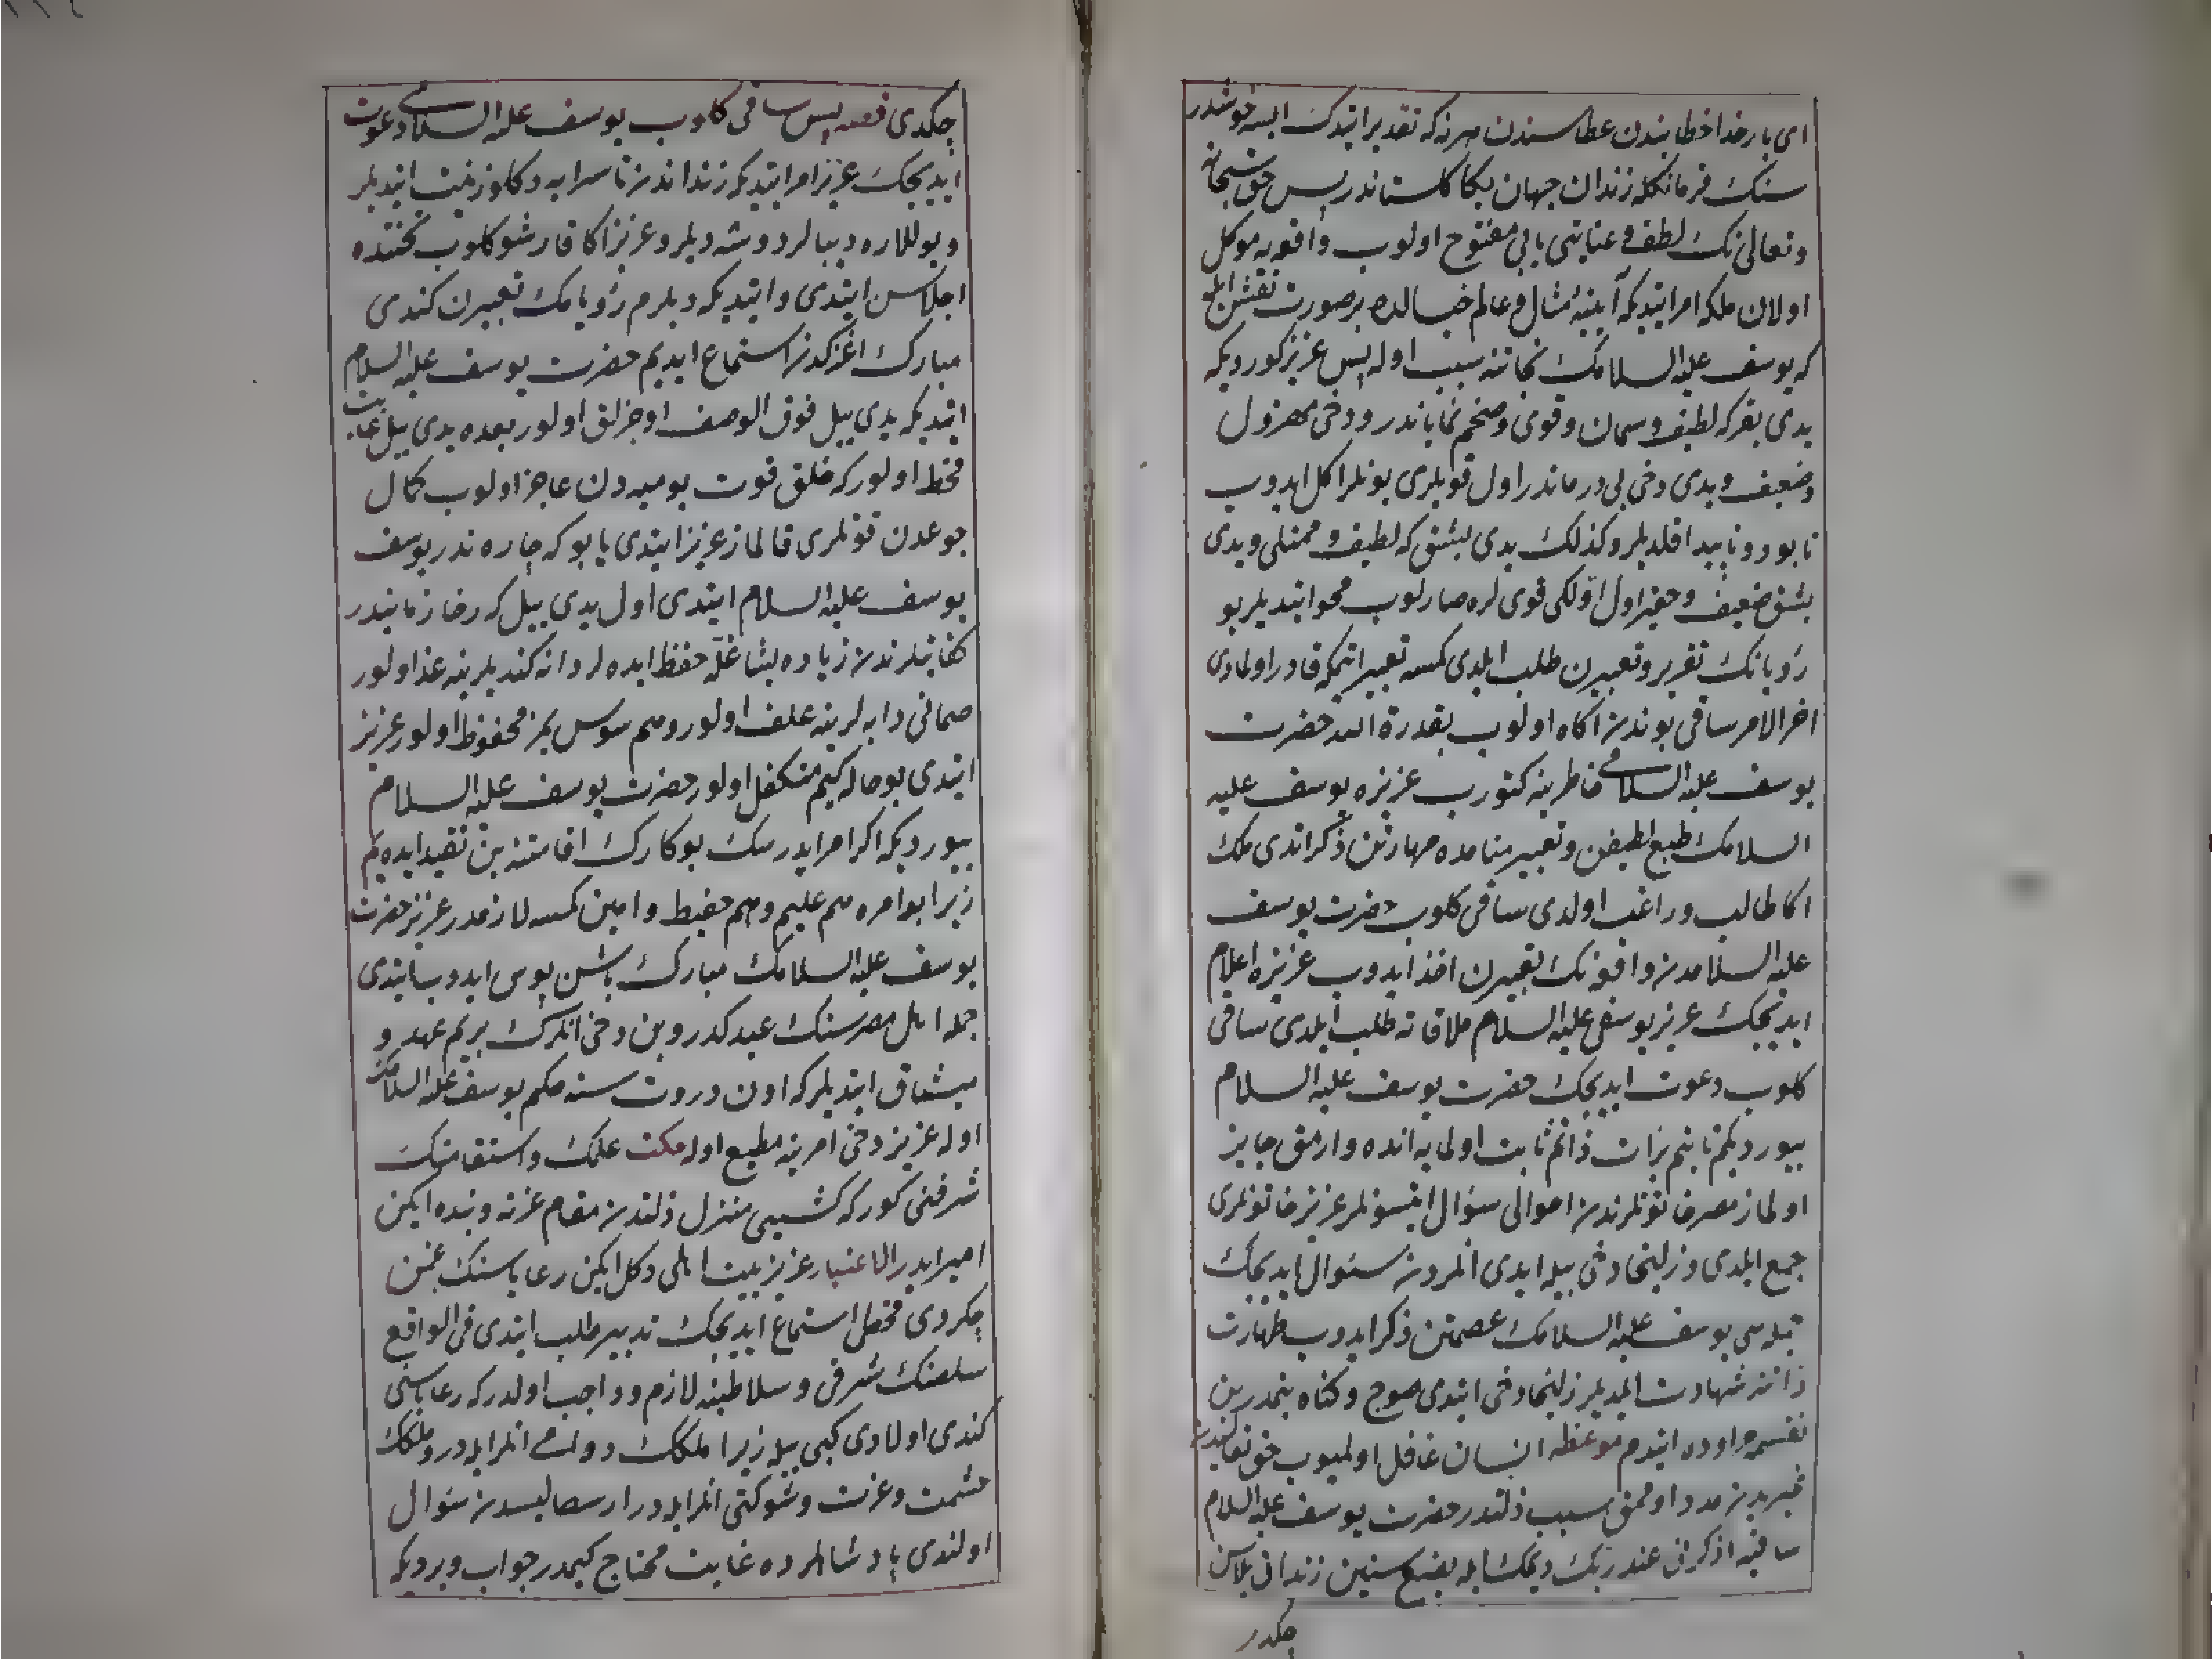 ای بار خدا خطا بندن عطا سندن هر نه که تقدیر ایتدك ایسه خوشدر
سنك فرمانكله زندان جهان بكا كلستاندر پس حق سبحانه
وتعالی نك لطف و عنایتی بابی مفتوح اولوب واقعه موكل
اولان ملكه امر ایتدیكه آیینهٔ مثال و عالم خیالده بر صورت نقش ایله
كه یوسف علیه السلامك نجاتنه سبب اوله پس عزیز كوردیكه
یدی بقر كه لطیف و سمان و قوی و ضخم نمایاندر و دخی مهزول
وضعیف و یدی دخی بی درماندر اول قویلری بونلر اكل ایدوب
نابود و ناپید اقلدیلر و كذلك یدی بشق كه لطیف و ممتلی ویدی
بشق ضعیف و حقیر اول اولكی قوی لره صارلوب محو ایتدیلر بو
رؤیانك تقریر و تعبیرن طلب ایلدی كمسه تعبیر اتمكه قادر اولمادی
اخر الامر ساقی بوندن آكاه اولوب بقدرة الله حضرت
یوسف علیه السلامی خاطرینه كتورب عزیزه یوسف علیه
السلامك طبع لطیفن و تعبیر منامده مهارتن ذكر اتدی ملك
اكا طالب و راغب اولدی ساقی كلوب حضرت یوسف
علیه السلامدن واقعه نك تعبیرن اخذ ایدوب عزیزه اعلام
ایدیجك عزیز یوسفی علیه السلام ملاقاته طلب ایلدی ساقی
كلوب دعوت ایدیجك حضرت یوسف علیه السلام
بیوردیكم تا بنم برات ذاتم ثابت اولمایه انده وارمق جایز
اولماز مصر خاتونلرندن احوالی سؤال ایتسونلر عزیز خاتونلری
جمع ایلدی و زلیخا دخی بیله ایدی انلردن سئوال ایدیجك
جمله سی یوسف علیه السلامك عصمتن ذكر ایدوب طهارت
ذاتنه شهادت ایلدیلر زلیخا دخی ایتدی صوچ و كناه بنمدر بن
نفسیمه اوده ایتدم موعظه انسان غافل اولمیوب حق تعالیدن
غیریدن مدد اوممق سبب ذلتدر حضرت یوسف علیه السلام
ساقیه اذكرنی عند ربك دیمكله بضع سنین زندان بلاسن
چكدر
چكدی قصه پس ساقی كلوب یوسف علیه السلامی دعوت
ایدیجك عزیز امر ایتدیكه زنداندن تا سرایه دكلو زینت ایتدیلر
و یوللاره دیبالر دوشه دیلر و عزیز اكا قارشو كلوب تختنده
اجلاس ایتدی و ایتدیكه دیلرم رؤیامك تعبیرن كندی
مبارك اغزكدن استماع ایدیم حضرت یوسف علیه السلام
ایتدیكه یدی ییل فوق الوصف اوجزلق اولور بعده یدی ییل غایت
قحط اولور كه خلق قوت بومیه دن عاجز اولوب كمال
جوعدن قوتلری قالماز عزیز ایتدی یا بو كه چاره ندر یوسف
یوسف علیه السلام ایتدی اول یدی ییل كه رخا زمانیدر
كفایتلرندن زیاده بشاغله حفظ ایده لر دانه كندیلرینه غذا اولور
صمانی دابه لرینه علف اولور و هم سوس یمز محفوظ اولور عزیز
ایتدی بو حاله كیم متكفل اولور حضرت یوسف علیه السلام
بیوردیكه اكر امر ایدرسك بو كارك اقامتنه بن تقید ایده یم
زیرا بو امره هم علیم و هم حفیظ و امین كمسه لازمدر عزیز حضرت
یوسف علیه السلامك مبارك باشن بوس ایدوب ایتدی
جمله اهل مصر سنك عبیدكدر و بن دخی انلرك بریم عهد و
میثاق ایتدیلر كه اون درت سنه حكم یوسف علیه السلامك
اوله عزیز دخی امرینه مطیع اوله حكمت علمك و استقامتك
شرفنی كور كه كشیی منزل ذلتدن مقام عزته و بنده ایكن
امیر ایدر الاعتبار عزیز بیت اهلی دكل ایكن رعایاسنك غمن
چكردی قحطی استماع ایدیجك تدبیر طلب ایتدی فی الواقع
سلطنك شرفی و سلاطینه لازم و واجب اولدر كه رعایاسنی
كندی اولادی كبی بیله زیرا ملكك دولتی انلر ایله در و ملكك
حشمت و عزت و شوكتی انلر ایله در ارسطالیسدن سئوال
اولندی پادشاهلرده غایت محتاج كیمدر جواب ویردیكه